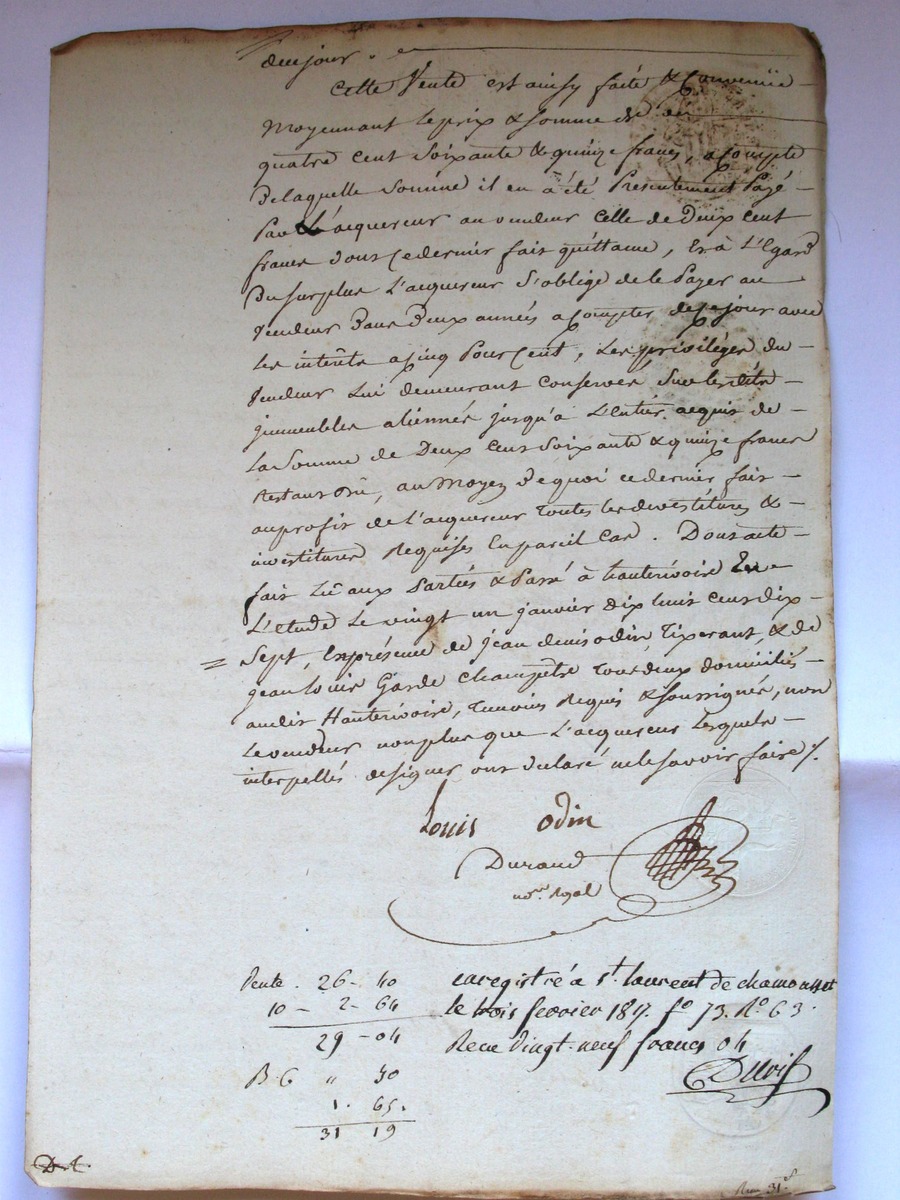 ce jour. et
Cette Vente est ainsy faite & Convenüe
Moyennant le prix & somme de
quatre cent Soixante & quinze francs, a Compte
De laquelle Somme il en à été Présentement Payé
Par L'acquereur au vendeur Celle de Deux cent
francs dont Ce dernier fait quittance, Et à L'Egard
Du surplus L'acquereur S'oblige de le Payer au
Vendeur Dans Deux années a Compter de Ce jour avec
Les intérêts a Cinq Pour Cent, Les privilèges du
Vendeur Lui demeurant conservés Sur les dits
immeubles aliennés jusqu'à L'entier acquis de
La Somme de Deux Cent Soixante & quinze francs
Restant Dû, au Moyen De quoi ce dernier fait
au profit de L'acquereur Toutes les devestitures &
investitures Requises En pareil Cas. Dont acte
fait Lû aux Parties & Passé à hauterivoire En
L'etude Le vingt un janvier dix huit cent dix
Sept, En présence de jean denis odin, Tixerant, & de
jean Louis Garde Champêtre Tous deux domiciliés
audit Hauterivoire, Temoins Requis & soussignés, non
Le vendeur non plus que L'acquereur Lesquels
interpellés de signer ont déclaré ne le savoir faire /.
Louis odin
Durand
not.re Royal
Vente. 26 - 40
10 - 2 - 64
29 - 04
B. G " 50
1. 65.
31 19
enregistré a st. laurent de chamousset
le trois fevrier 1817. fo 73. No. 63.
Recu Vingt-neuf francs 04